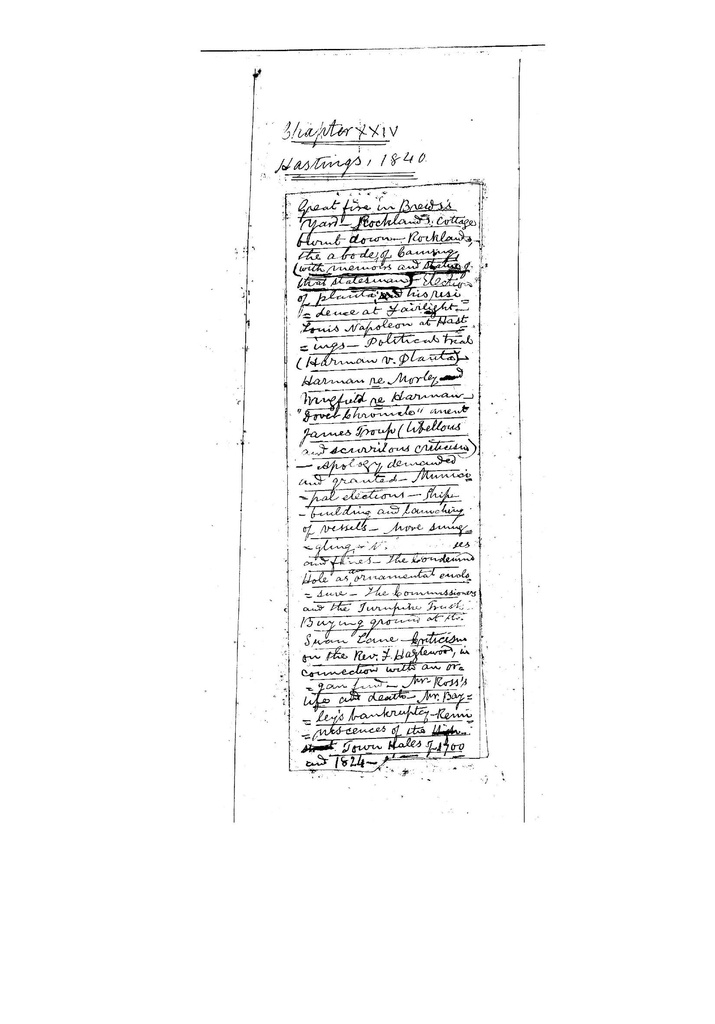 Chapter XXIV
Hastings, 1840
Great fire in Breeds's
Yard — Rocklands Cottage
burnt down — Rocklands,
the abode of Canning,
(with memoirs and of
that statesman) — Election
of Planta and his resi
= dence at Fairlight —
Louis Napoleon at Hast
= ings — Political trial
(Harman v. Planta)
Harman re Morley and
Wingfield re Harman —
"Dover Chronicle" anent
James Troup (libellous
and scurrilous criticism)
— Apology demanded
and granted — Munici
= pal elections — Ship
= building and launching
of vessels — More smug
= gling
and fines — The Condemned
Hole as an ornamental enclo
= sure — The Commissioners
and the Turnpike Trust
Burying ground at the
Swan Lane — Criticism
on the Rev. J. Haglewood, in
connection with an or=
= gan fund — Mr. Ross's
life and death — Mr. Bay=
= ley's bankruptcy — Remi
= niscences of the High
street Town Halls of 1700
and 1824 —